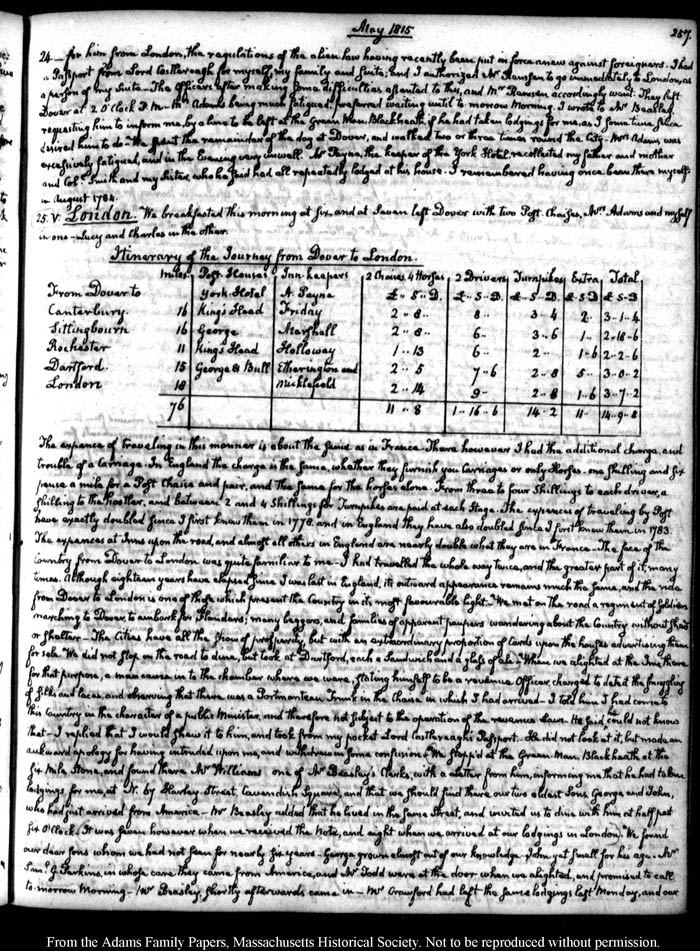 May 1815
257.
24 — for him from London, the regulations of the alien law having recently been put in force anew against foreigners. I had
a Passport from Lord Castlereagh for myself, my family and Suite; and I authorized Mr Ramsen to go immediately to London, as
a person of my Suite — The Officers after making some difficulties assented to this, and Mr Ramsen accordingly went. They left
Dover at 2 O'Clock P.M. Mrs Adams being much fatigued preferred waiting until to-morrow Morning. I wrote to Mr Beasley
requesting him to inform me, by a line to be left at the Green Man, Blackheath if he had taken lodgings for me, as I some time since
desired him to do — We spent the remainder of the day at Dover, and walked two or three times round the City. Mrs Adams was
excessively fatigued, and in the Evening very unwell. Mr Payne, the keeper of the York Hotel, recollected my father and mother
and Coll. Smith and my Sister, who he said had all repeatedly lodged at his house. I remembered having once been there myself
in August 1784.
25. V. London. We breakfasted this morning at Six, and at Seven left Dover with two Post Chaises, Mrs Adams and myself
in one — Lucy and Charles in the other.
Itinerary of the Journey from Dover to London.
miles Post Houses Inn-keepers 2 Chaises, 4 Horses 2 Drivers Turnpikes Extra Total
From Dover to York Hotel A. Payne £ „ S „ D. £ „ S „ D. £ „ S „ D £ S D £ S D
Canterbury. 16 King's Head Friday 2 „ 8 „ 8 „ 3 „ 4 2 „ 3 „ 1 „ 4
Sittingbourn 16 George Marshall 2 „ 8 „ 6 „ 3 „ 6 1 „ 2 „ 18 „ 6
Rochester 11 King's Head Holloway 1 „ 13 6 „ 2 „ 1 „ 6 2 „ 2 „ 6
Dartford. 15 George & Bull Etherington and 2 „ 5 7 „ 6 2 „ 8 5 „ 3 „ 0 „ 2
London 18 Micklefield 2 „ 14 9 „ 2 „ 8 1 „ 6 3 „ 7 „ 2
76 11 „ 8 1 „ 16 „ 6 14 „ 2 11 „ 14 „ 9 „ 8
The expence of traveling in this manner is about the same as in France. There however I had the additional charge, and
trouble of a Carriage. In England the charge is the same, whether they furnish you Carriages or only Horses. one shilling and six
pence a mile for a Post Chaise and pair, and the same for the horses alone. From three to four Shillings to each driver, a
shilling to the hostler, and between 2 and 4 Shillings for Turnpikes are paid at each Stage. The expences of traveling by Post
have exactly doubled since I first knew them in 1778, and in England they have also doubled since I first knew them in 1783.
The expences at Inns upon the road, and almost all others in England are nearly double what they are in France — The face of the
Country from Dover to London was quite familiar to me — I had travelled the whole way twice, and the greater part of it, many
times. Although eighteen years have elapsed since I was last in England, its outward appearance remains much the same, and the ride
from Dover to London is one of those which present the Country in its most favourable light — We met on the road a regiment of Soldiers
marching to Dover, to embark for Flanders; many beggars, and families of apparent paupers wandering about the Country without shoes
or shelter — The Cities have all the show of prosperity, but with an extraordinary proportion of Cards upon the houses advertising them
for sale. We did not stop on the road to dine, but took at Dartford, each a Sandwich and a glass of ale. When we alighted at the Inn, there
for that purpose, a man came in to the chamber where we were, stating himself to be a revenue Officer, charged to detect the smuggling
of silks and laces, and observing that there was a Portmanteau Trunk in the Chaise in which I had arrived — I told him I had come to
this Country in the character of a public Minister, and therefore not subject to the operation of the revenue Laws. He said could not know
that — I replied that I would shew it to him, and took from my pocket Lord Castlereagh's Passport. He did not look at it, but made an
awkward apology for having intruded upon me, and withdrew in some confusion. We stopp'd at the Green-Man, Blackheath at the
Six Mile Stone, and found there Mr Williams one of Mr Beasley's Clerks, with a Letter from him, informing me that he had taken
lodgings for me, at Harley-Street, Cavendish Square, and that we should find there our two eldest Sons George and John,
who had just arrived from America — Mr Beasley added that he lived in the same Street, and invited us to dine with him at half past
Six O'Clock. It was seven however when we received the Note, and eight when we arrived at our lodgings in London. We found
our dear sons whom we had not seen for nearly six years — George grown almost out of our knowledge. John yet small for his age. Mr
Saml. G. Perkins, in whose care they came from America, and Mr Todd were at the door when we alighted, and promised to call
to-morrow Morning — Mr Beasley, shortly afterwards came in — Mr Crawford had left the same lodgings last Monday, and our
From the Adams Family Papers, Massachusetts Historical Society. Not to be reproduced without permission.